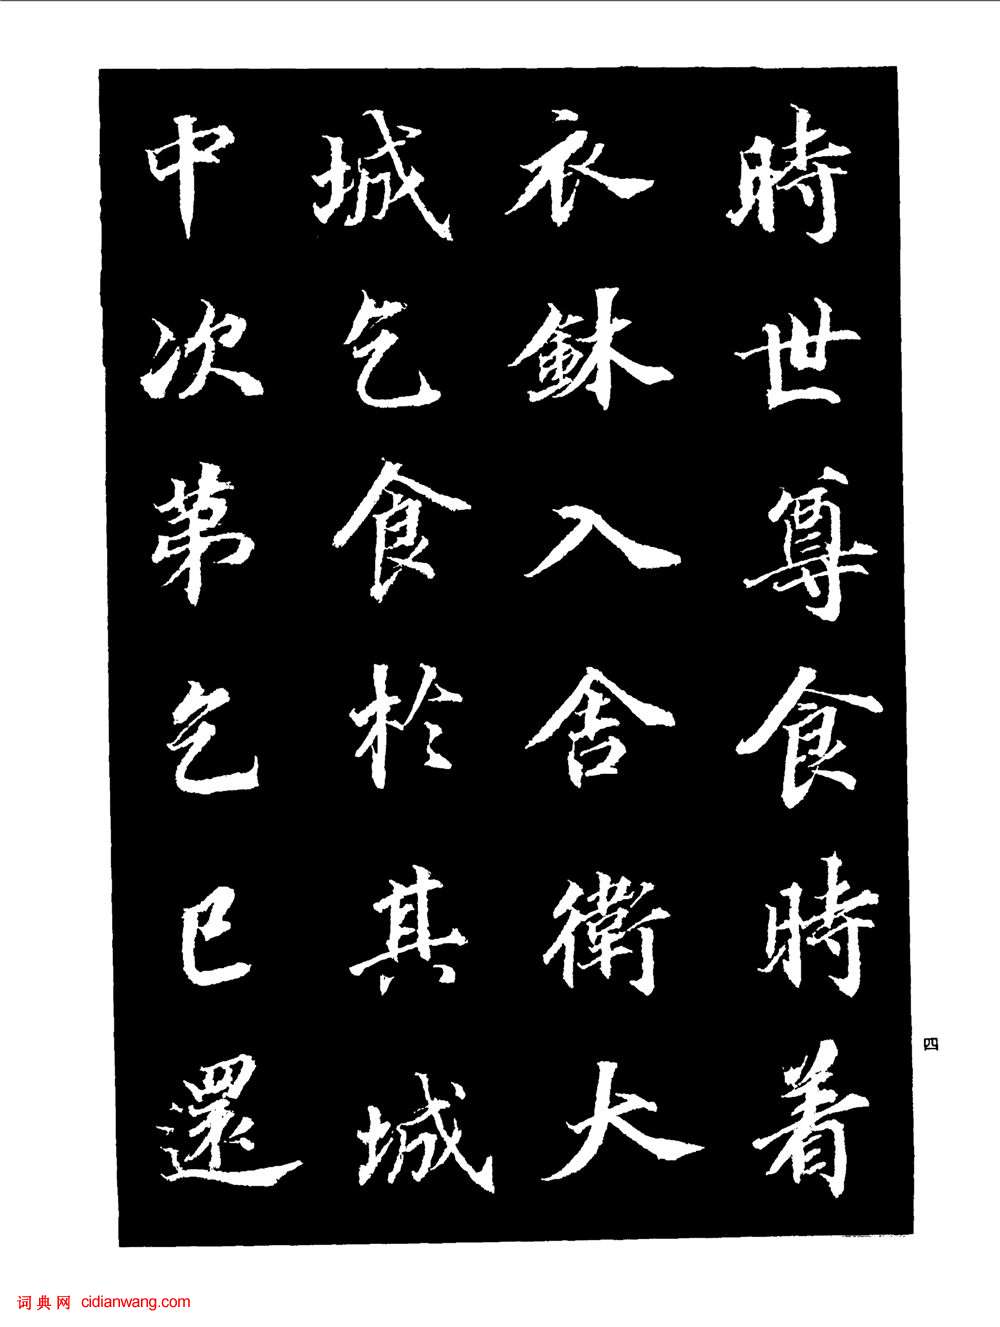 時世尊食時着
衣鉢入舍衛大
城乞食於其城
中次第乞已還
四
词典网 cidianwang.com